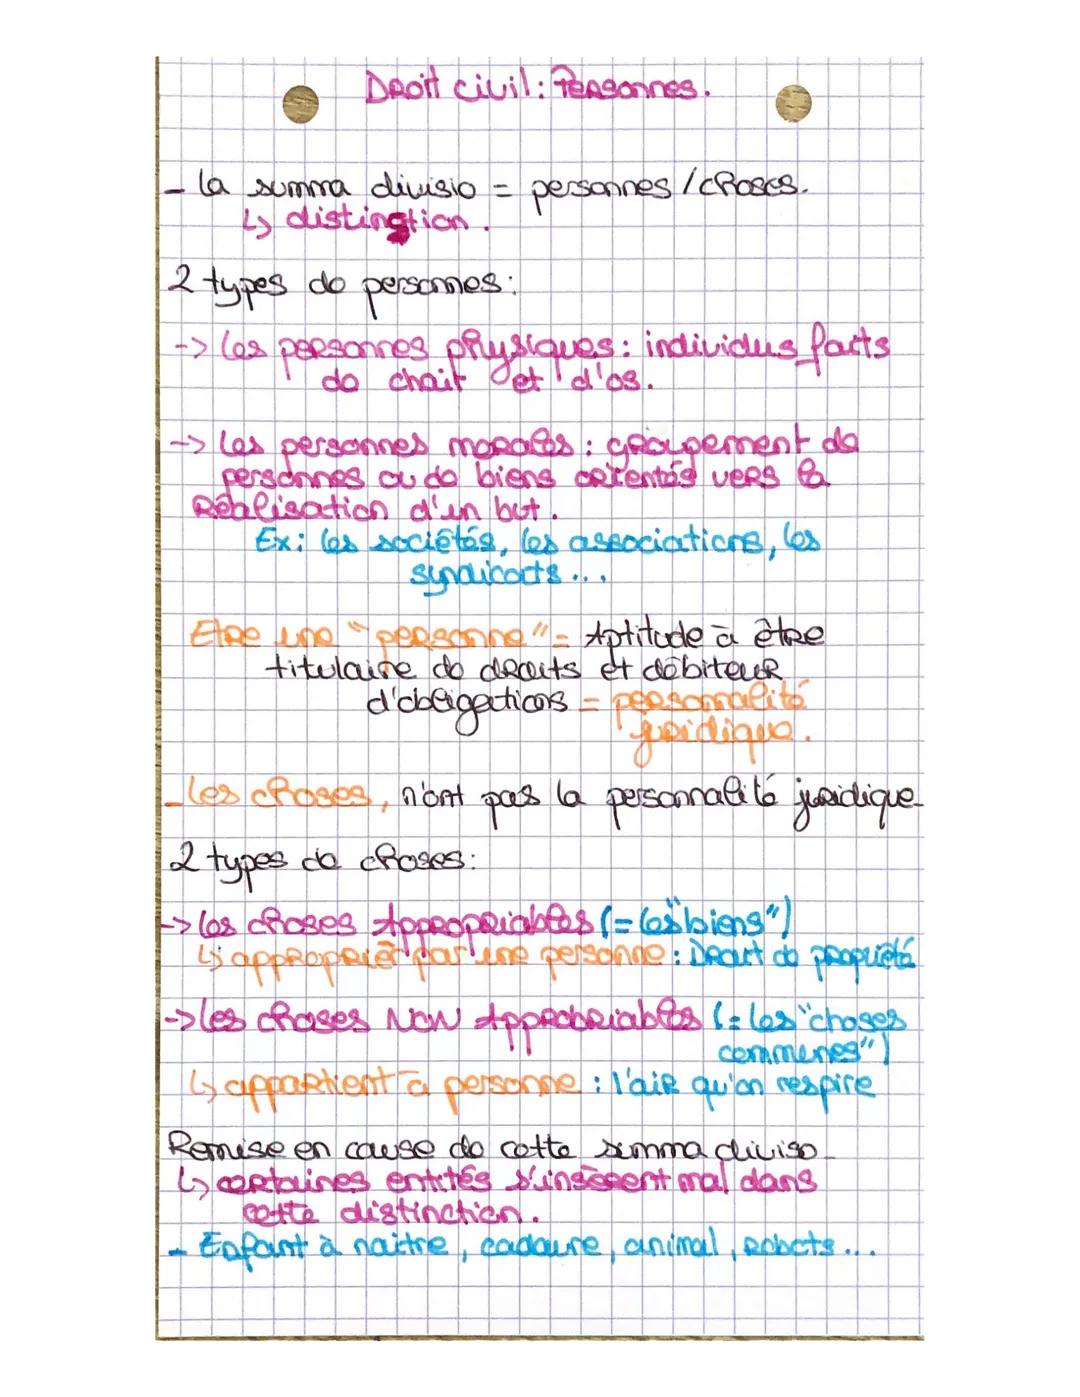 Droit civil : Personnes.
- la summa divisio = personnes / choses.
↳ distinction.
2 types de personnes :
-> les personnes physiques : individus faits
de chair et d'os.
-> les personnes morales : groupement de
personnes ou de biens orientés vers la
Réalisation d'un but.
Ex : les sociétés, les associations, les
syndicats ...
Etre une "personne" = Aptitude à être
titulaire de droits et débiteur
d'obligations = personnalité
juridique.
- les choses, n'ont pas la personnalité juridique
2 types de choses :
-> les choses Appropriables (= les "biens")
↳ approprier par une personne : Droit de propriété
-> les choses NON Appropriables (= les "choses
communes")
↳ appartient à personne : l'air qu'on respire
Remise en cause de cette summa diviso
↳ certaines entités s'insèrent mal dans
cette distinction.
- Enfant à naitre, cadavre, animal, Robots ...